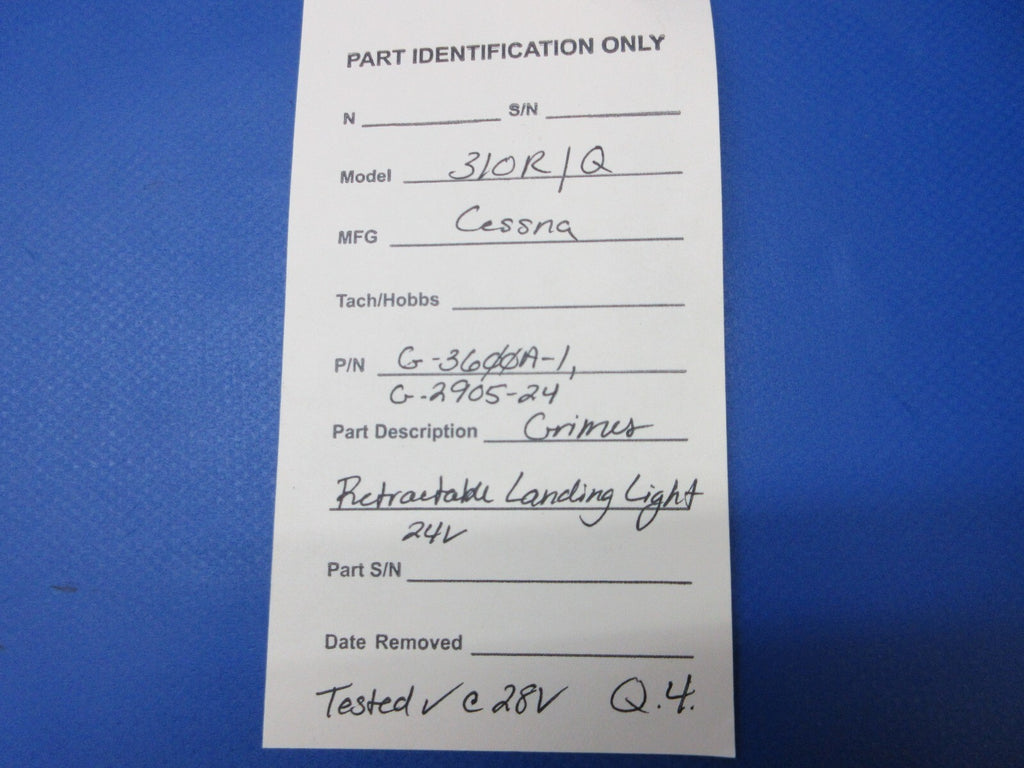 PART IDENTIFICATION ONLY
N S/N
Model 310R/Q
MFG Cessna
Tach/Hobbs
P/N G-3600A-1,
G-2905-24
Part Description Grimes
Retractable Landing Light
24V
Part S/N
Date Removed
Tested ✓ @ 28V Q.4.